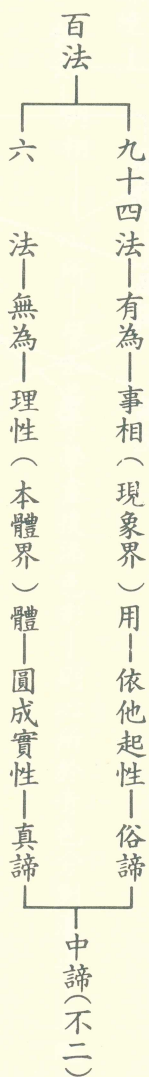 百法
九十四法—有為—事相(現象界)用—依他起性—俗諦
六　法—無為—理性(本體界)體—圓成實性—真諦
中諦(不二)